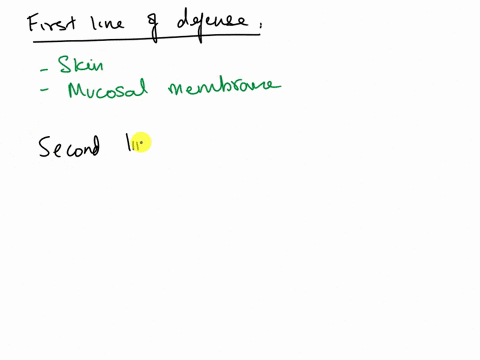 First line of defense.
- Skin
- Mucosal membrane
Second